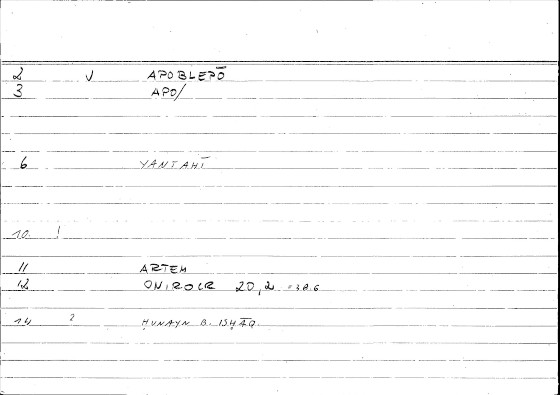 2 V APOBLEPŌ
3 APO/
6 YANTAHĪ
10. !
11 ARTEM
12 ONIROCR 20,2
14 2 ḤUNAYN B. ISḤĀQ.